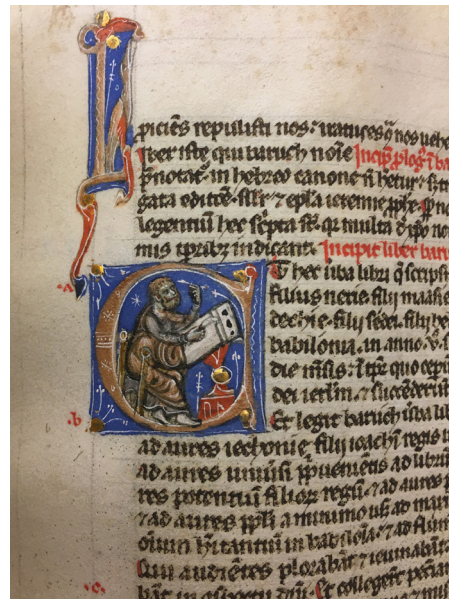 piciens repulisti nos: iratus es q̄ nos uehe
iber iste qui baruch noīe Incip̄ ploḡ ī ba
p̄notat̄ in hebreo canone n̄ het̄ur
gata editōe. silr̄ ⁊ ep̄la ieremie
legentiū hec sc̄pta st̄. qr̄ multa d̄ xp̄o no
mis tp̄ribꝫ indicant. Incipit liber baru
a
T hec ūba libri q̄ scripsit
filius nerie. filij maasie
dechie. filij sedei. filij he
babilonia. in anno. v.
die mēsis. ī tp̄r quo cep̄
dei ierl̄m. ⁊ succēderūt
b
Et legit baruch ūba li
ad aures iechonie filij ioachī regis iu
ad aures uniūsi ppl̄i ueniētis ad librū
res potentiū filioꝝ regū. ⁊ ad aures p
⁊ ad aures ppl̄i a minimo usꝫ ad maxi
oium hītantiū in babilōia. ⁊ ad flum
Qui audiētes plorabāt ⁊ ieiunabāt
c
bāt in ꝯspectu dn̄i. Et collegerūt pecūniā